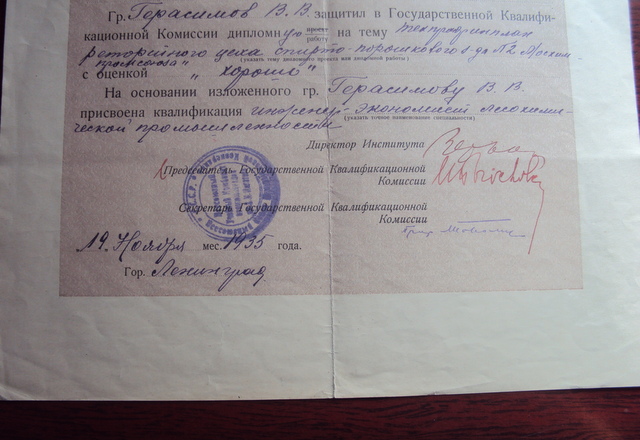 Гр. Герасимов В.В. защитил в Государственной Квалифи-
кационной Комиссии дипломную работу на тему Техпромфинплан
ретортного цеха спирто-порошкового з-да №2
(указать тему дипломного проекта или дипломной работы)
с оценкой „хорошо"
На основании изложенного гр. Герасимову В.В.
присвоена квалификация инженер-экономист лесохими-
(указать точное наименование специальности)
ческой промышленности
Директор Института
Председатель Государственной Квалификационной
Комиссии
Секретарь Государственной Квалификационной
Комиссии
19 Ноября мес. 1935 года.
Гор. Ленинград